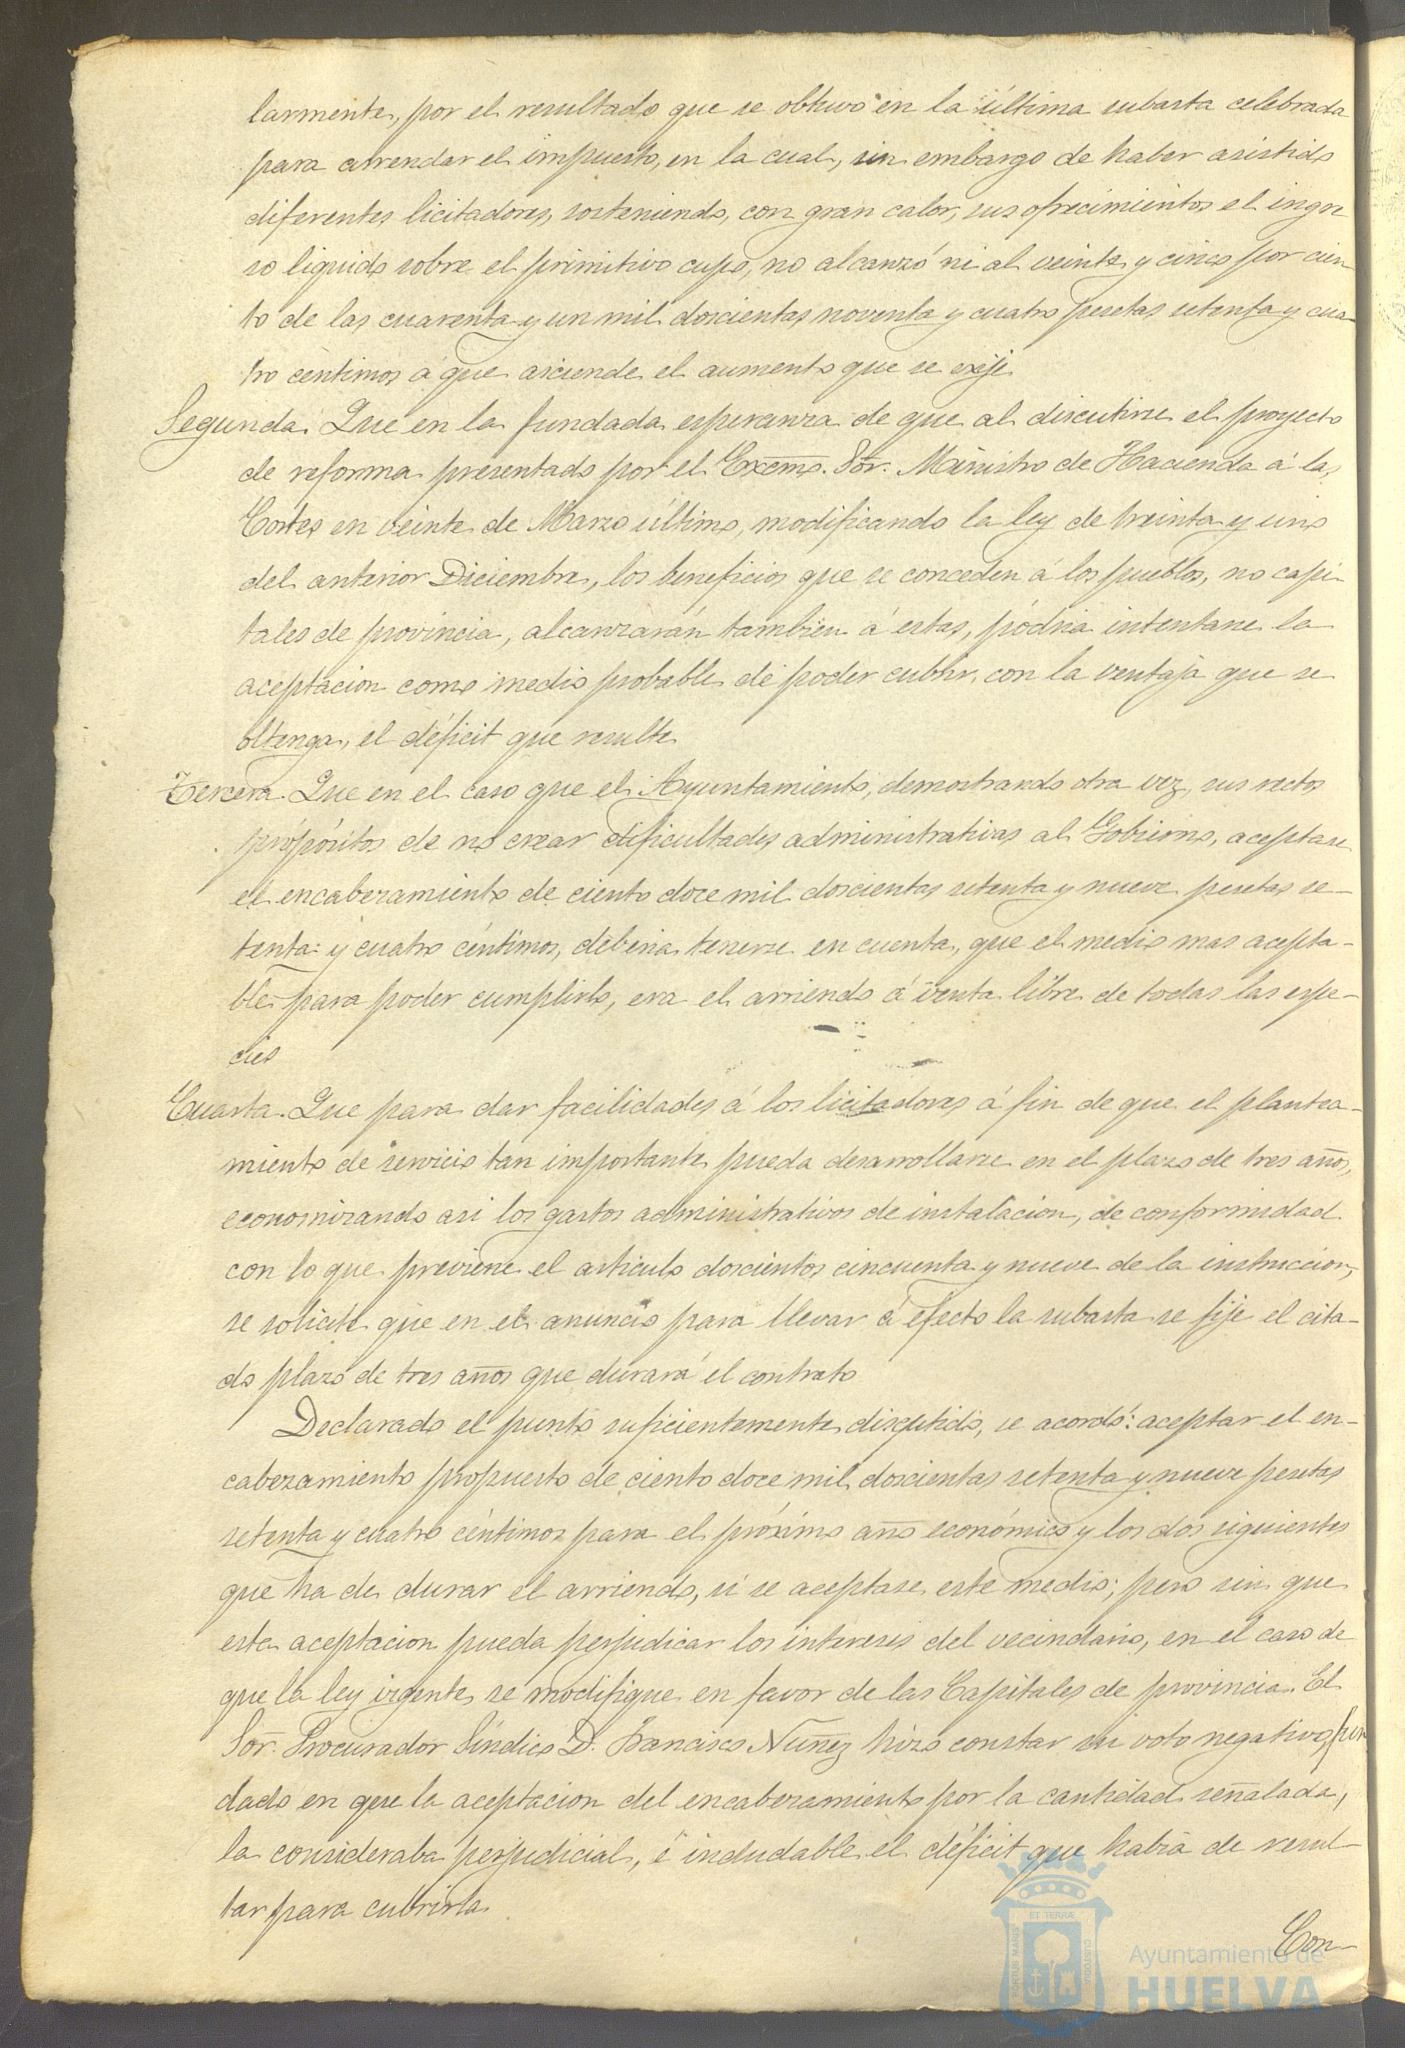 larmente, por el resultado que se obtuvo en la última subasta celebrada
para arrendar el impuesto, en la cual, sin embargo de haber asistido
diferentes licitadores, sosteniendo, con gran calor, sus ofrecimientos el ingre
so liquido sobre el primitivo cupo, no alcanzó ni al veinte y cinco por cien-
to de las cuarenta y un mil doscientas noventa y cuatro pesetas setenta y cua-
tro céntimos á que asciende el aumento que se exije
Segunda. Que en la fundada esperanza de que al discutirse el proyecto
de reforma presentado por el Excmo. Sor. Ministro de Hacienda á las
Córtes en veinte de Marzo último, modificando la ley de treinta y uno
del anterior Diciembre, los beneficios que se conceden á los pueblos, no capi-
tales de provincia, alcanzarán tambien á estas, pódria intentarse la
aceptacion como medio probable de poder cubrir, con la ventaja que se
obtenga, el déficit que resulte
Tercera. Que en el caso que el Ayuntamiento, demostrando otra vez, sus rectos
própósitos de no crear dificultades administrativas al Gobierno, aceptase
el encabezamiento de ciento doce mil doscientas setenta y nueve pesetas se-
tenta y cuatro céntimos, deberia tenerse en cuenta, que el medio mas acepta-
ble para poder cumplirlo, era el arriendo á venta libre de todas las espe-
cies
Cuarta. Que para dar facilidades á los licitadores á fin de que el plantea-
miento de servicio tan importante pueda desarrollarse en el plazo de tres años,
economizando asi los gastos administrativos de instalacion, de conformidad
con lo que previene el articulo doscientos cincuenta y nueve de la instruccion,
se solicite que en el anuncio para llevar á efecto la subasta se fije el cita-
do plazo de tres años que durará el contrato
Declarado el punto suficientemente discutido, se acordó: aceptar el en-
cabezamiento propuesto de ciento doce mil doscientas setenta y nueve pesetas
setenta y cuatro céntimos para el próximo año económico y los dos siguientes
que ha de durar el arriendo, si se aceptase este medio; pero sin que
esta aceptacion pueda perjudicar los intereses del vecindario, en el caso de
que la ley vigente se modifique en favor de las Capitales de provincia. El
Sor. Procurador Síndico D. Francisco Nuñez hizo constar su voto negativo, fun
dado en que la aceptacion del encabezamiento por la cantidad señalada,
la consideraba perjudicial, é indudable el déficit que habia de resul-
tar para cubrirla
Con-
PORTUS MARIS
ET TERRÆ
CUSTODIA
Ayuntamiento de
HUELVA